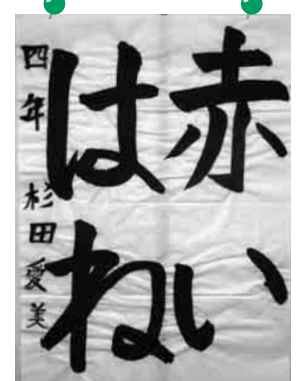 赤い
はね
四年 杉田愛美